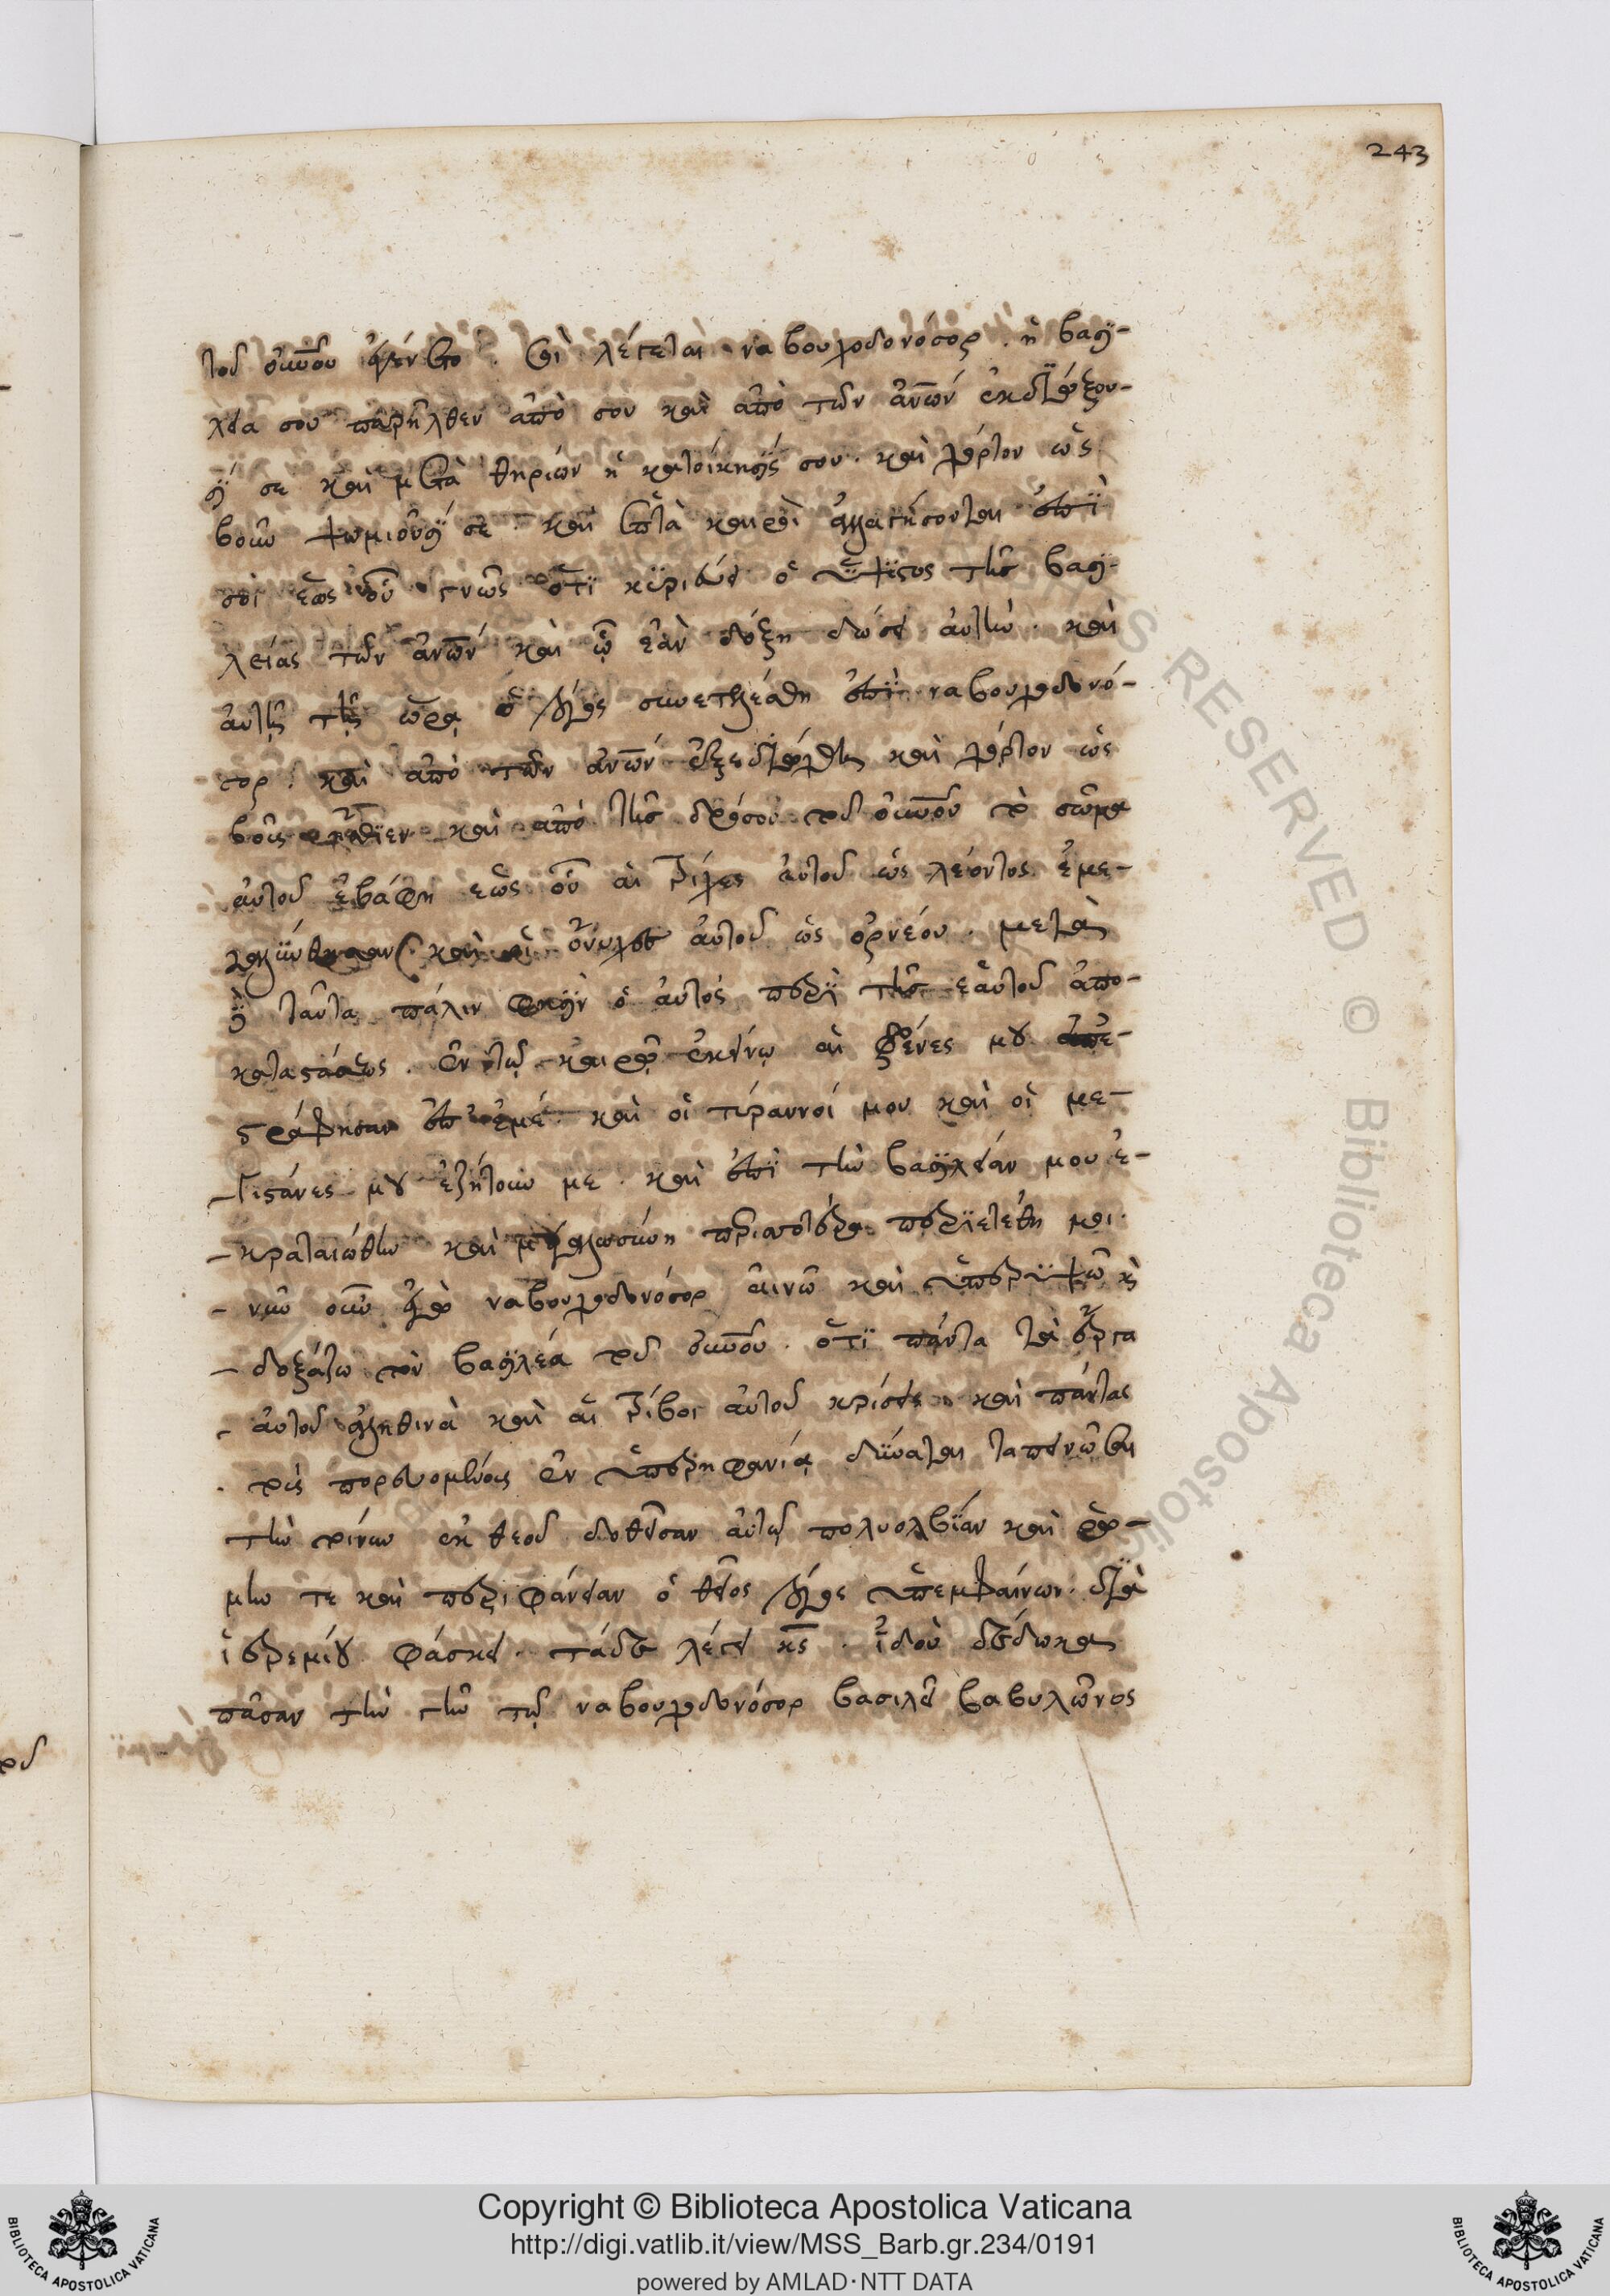 243
τοῦ οὐνοῦ ἐγένετο. σοὶ λέγεται ναβουχοδονόσορ. ἡ βασϊ-
λεία σου παρῆλθεν ἀπὸ σου καὶ ἀπὸ τῶν ἀνῶν ἐκδιώξου-
σΐ σε καὶ μετὰ θηρίων ἡ κατοίκησΐς σου. καὶ χόρτον ὡς
βοῦν ψωμιοῦσΐ σε. καὶ ἑπτὰ καιροὶ ἀλλαγήσονται ἐπῒ
σοὶ ἕως οὗ γνῶς ὅτϊ κϋριεύει ὁ ὕψϊστος τῆς βασϊ-
λείας τῶν ἀνῶν καὶ ᾧ ἐὰν δόξη δώσει αὐτὴν. καὶ
αὐτῇ τῇ ὥρᾳ ὁ λόγος συνετελέσθη ἐπῒ ναβουχοδονό-
σορ. καὶ ἀπὸ τῶν ἀνῶν ἐξεδιώχθη καὶ χόρτον ὡς
βοῦς ἤσθϊεν καὶ ἀπὸ τῆς δρόσου τοῦ οὐνοῦ τὸ σῶμα
αὐτοῦ ἐβάφη ἕως οὗ αἱ τρίχες αὐτοῦ ὡς λέοντος ἐμε-
γαλύνθησαν. καὶ οἱ ὄνυχες αὐτοῦ ὡς ὀρνέου. μετὰ
ταῦτα πάλιν φησῒν ὁ αὐτὸς περῒ τῆς ἑαυτοῦ ἀπο-
καταστάσεως. ἐν τῷ καιρῷ ἐκείνῳ αἱ φρένες μου ἐπε-
στράφησαν ἐπ ἐμέ. καὶ οἱ τύραννοί μου καὶ οἱ με-
γιστάνες μου ἐζήτουν με. καὶ ἐπῒ τὴν βασϊλείαν μου ἐ-
κραταιώθην καὶ μεγαλωσύνη περισσοτέρα προσετέθη μοι.
νῦν οὖν ἐγὼ ναβουχοδονόσορ αἰνῶ καὶ ὑπερϋψῶ κ
δοξάζω τὸν βασϊλέα τοῦ οὐνοῦ. ὅτϊ πάντα τὰ ἔργα
αὐτοῦ ἀληθινὰ καὶ αἱ τρίβοι αὐτοῦ κρίσεις καὶ πάντας
τοὺς πορευομένους ἐν ὑπερηφανίᾳ δύναται ταπεινῶσαι
τὴν τοίνυν ἐκ θεοῦ δοθεῖσαν αὐτῷ πολυολβΐαν καὶ ῥώ-
μην τε καὶ περιφάνειαν ὁ θεῖος λόγος ὑπεμφαίνων. διὰ
ἱερεμίου φάσκει. τάδε λέγει κς. ἰδοὺ δέδωκα
πᾶσαν τὴν γῆν τῷ ναβουχοδονόσορ βασιλεῖ βαβυλῶνος
Copyright © Biblioteca Apostolica Vaticana
http://digi.vatlib.it/view/MSS_Barb.gr.234/0191
powered by AMLAD·NTT DATA